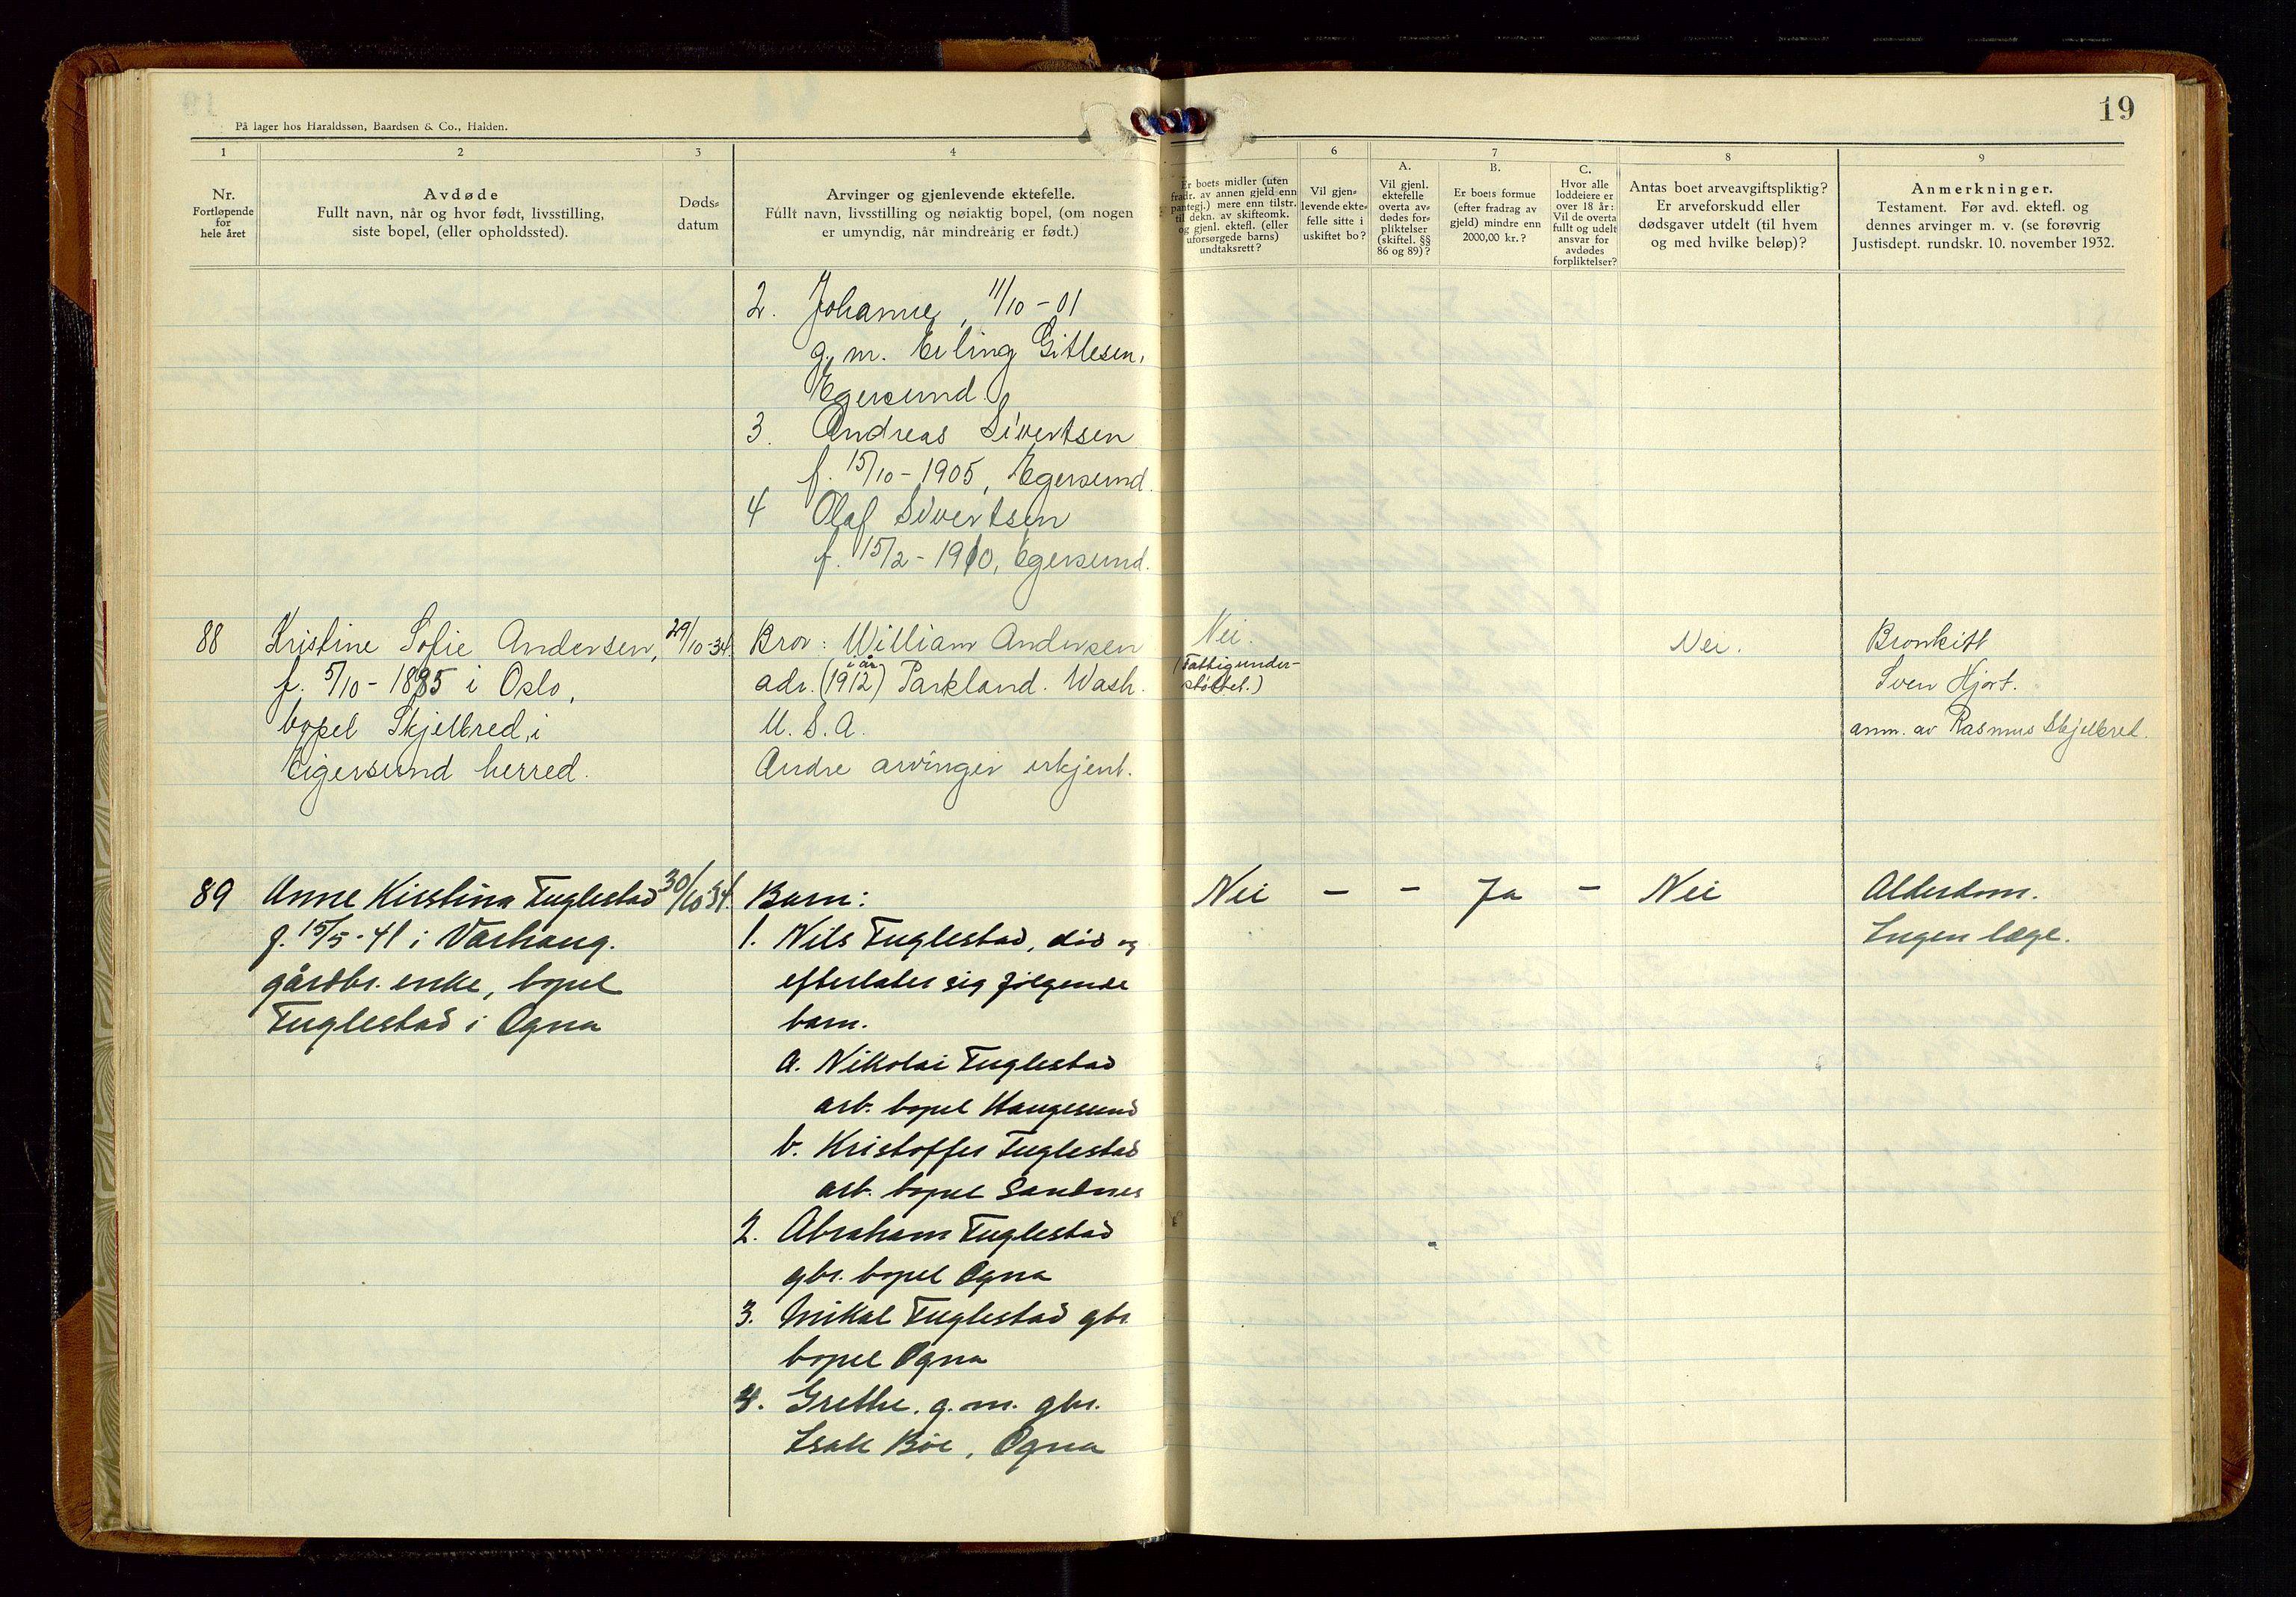 19
På lager hos Haraldssøn, Baardsen & Co., Halden.
1
2
3
4
6
7
8
9
Nr.
Fortløpende
for
hele året
Avdøde
Fullt navn, når og hvor født, livsstilling,
siste bopel, (eller opholdssted).
Døds-
datum
Arvinger og gjenlevende ektefelle.
Fullt navn, livsstilling og nøiaktig bopel, (om nogen
er umyndig, når mindreårig er født.)
Er boets midler (uten
fradr. av annen gjeld enn
pantegj.) mere enn tilstr.
til dekn. av skifteomk.
og gjenl. ektefl. (eller
uforsørgede barns)
undtaksrett?
Vil gjen-
levende ekte-
felle sitte i
uskiftet bo?
A.
Vil gjenl.
ektefelle
overta av-
dødes for-
pliktelser
(skiftel. §§
86 og 89)?
B.
Er boets formue
(efter fradrag av
gjeld) mindre enn
2000,00 kr.?
C.
Hvor alle
loddeiere er
over 18 år:
Vil de overta
fullt og udelt
ansvar for
avdødes
forpliktelser?
Antas boet arveavgiftspliktig?
Er arveforskudd eller
dødsgaver utdelt (til hvem
og med hvilke beløp)?
Anmerkninger.
Testament. Før avd. ektefl. og
dennes arvinger m. v. (se forøvrig
Justisdept. rundskr. 10. november 1932.
2. Johanne, 11/10 - 01
g. m. Erling Gitlesen,
Egersund.
3. Andreas Sivertsen
f. 15/10 - 1905, Egersund.
4 Olaf Sivertsen
f. 15/2 - 1910, Egersund.
88 Kristine Sofie Andersen, 29/10-34. Bror: William Andersen Nei. Nei. Bronkitt
f. 5/10 - 1885 i Oslo, adr. (i år 1912) Parkland. Wash. (Fattigunder- Sven Hjort.
støttet.)
bopel Skjelbred, i U. S. A. anm. av Rasmus Skjelbred.
Eigersund herred. Andre arvinger ukjent.
89 Anne Kirstina Fuglestad 30/10 34. Barn: Nei - - Ja - Nei Alderdom.
f. 15/5 - 41 i Varhaug. 1. Nils Fuglestad, død og Ingen læge.
gårdbr. enke, bopel efterlater sig følgende
Fuglestad i Ogna barn.
a. Nikolai Fuglestad
arb. bopel Haugesund
b. Kristoffer Fuglestad
arb. bopel Sandnes
2. Abraham Fuglestad
gbr. bopel Ogna
3. Mikal Fuglestad gbr.
bopel Ogna
4. Grethe. g. m. gbr.
Isak Bøe, Ogna